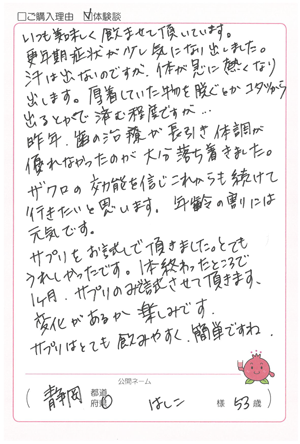 □ご購入理由 ☑体験談
いつも美味しく飲ませて頂いています。
更年期症状が少し気になり出しました。
汗は出ないのですが、体が急に熱くなり
出します。厚着していた物を脱ぐとかコタツから
出るとかで済む程度ですが…
昨年、歯の治療が長引き体調が
優れなかったのが大分落ち着きました。
ザクロの効能を信じこれからも続けて
行きたいと思います。年齢の割りには
元気です。
サプリをお試しで頂きました。とても
うれしかったです。1本終わったところで
1ヶ月、サプリのみ試させて頂きます、
変化があるか楽しみです。
サプリはとても飲みやすく、簡単ですね。
公開ネーム
(静岡 都道府県 はしこ 様 53歳)